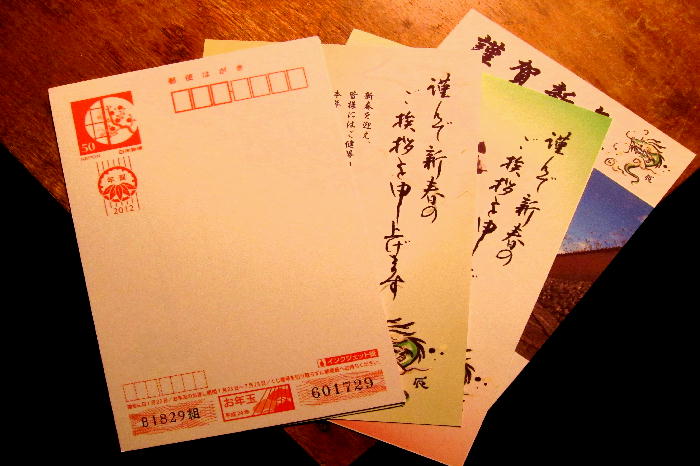 郵便はがき
50
NIPPON
日本郵便
年賀
2012
インクジェット紙
B1829組
お年玉
平成24年
601729
新春を迎え、
皆様にはご健勝
本年
謹んで新春の
ご挨拶を申し上げます
辰
謹んで新春の
ご挨拶を申し
謹賀新
辰